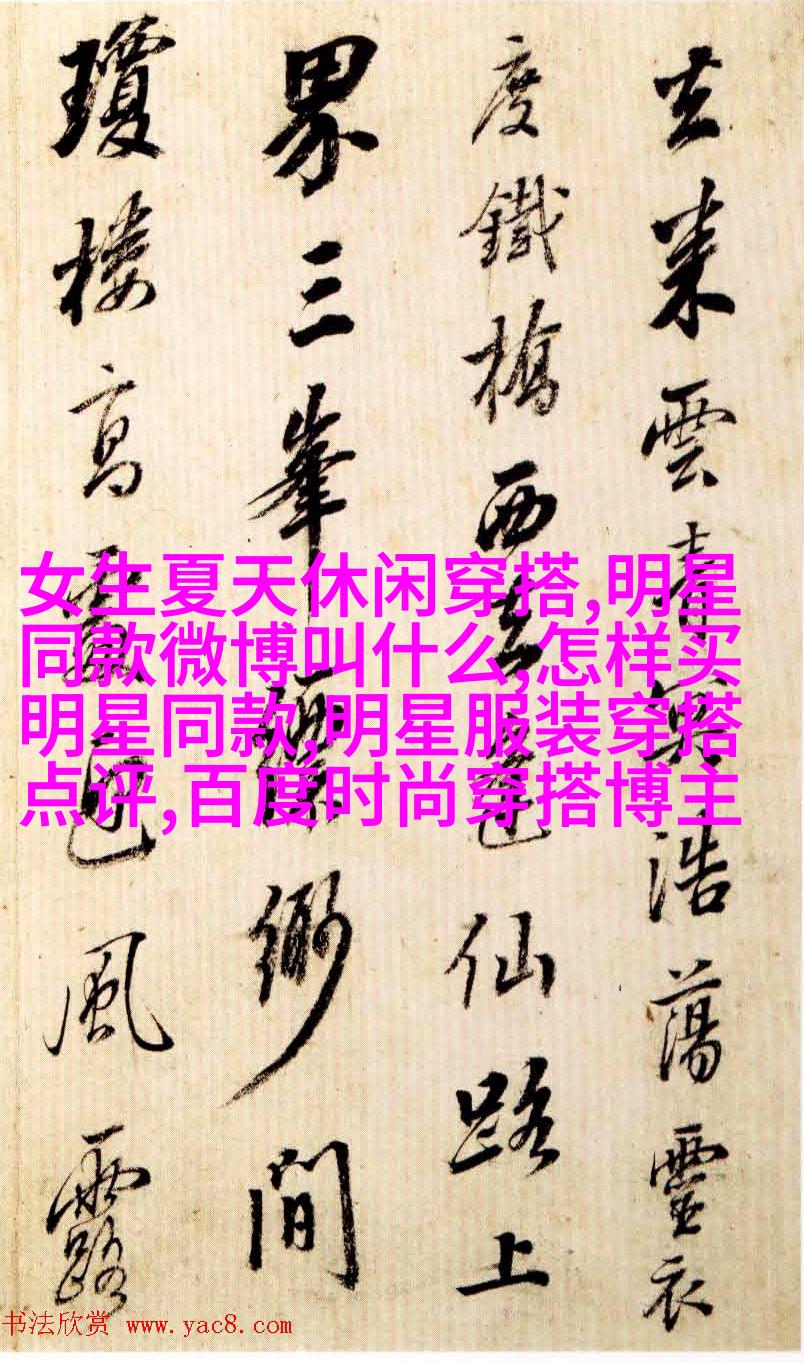 去來雲青冥浩蕩靈衣
度鐵橋西去仙路上
界三峯縹緲間
瓊樓高風露
女生夏天休闲穿搭,明星
同款微博叫什么,怎样买
明星同款,明星服装穿搭
点评,百度时尚穿搭博主
书法欣赏 www.yac8.com